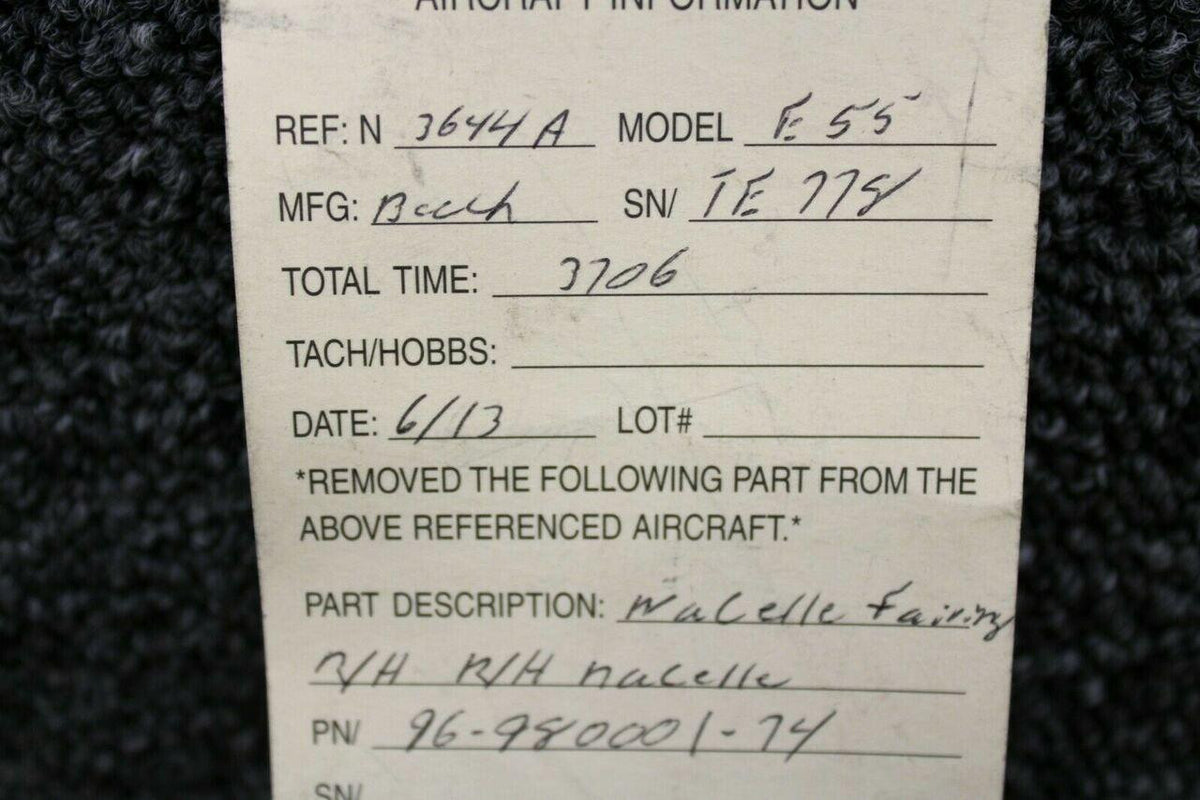 AIRCRAFT INFORMATION
REF: N 3644A MODEL E55
MFG: Beech SN/ TE 778
TOTAL TIME: 3706
TACH/HOBBS:
DATE: 6/13 LOT#
*REMOVED THE FOLLOWING PART FROM THE
ABOVE REFERENCED AIRCRAFT.*
PART DESCRIPTION: Nacelle Fairing
R/H R/H nacelle
PN/ 96-980001-74
SN/